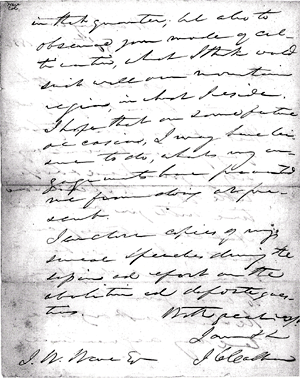 in that quarter, but also to
observe your mode of cul-
tivation, which I think would
suit well our mountain
region, in which I reside.
I hope that on some future
occasion, I may have leis-
ure to do, what my en-
gagements have prevented
me from doing at pre-
sent.
I enclose copies of my
several speeches during the
session and report on the
abolition and deposit ques-
tions.
With great respect
I am &
J. C. Calhoun
J. W.